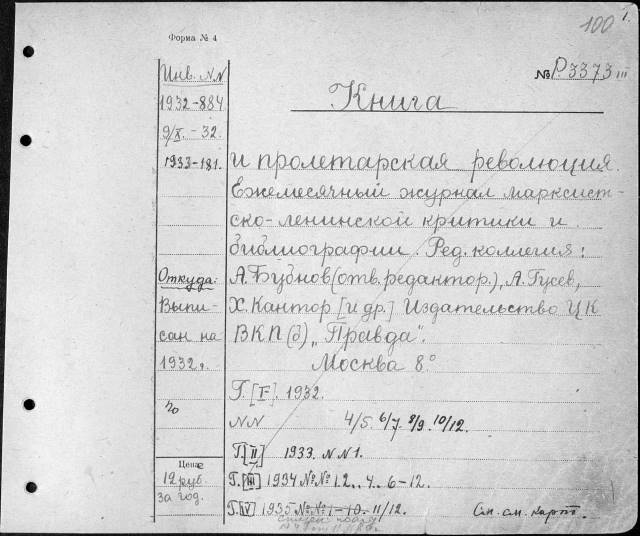 100 1.
Форма № 4
№ Р.3373 III
Инв. NN
1932-884
9/X.-32.
1933-181.
Откуда:
Выпи-
сан на
1932 г.
Цена:
12 руб.
за год.
Книга
и пролетарская революция.
Ежемесячный журнал марксист-
ско-ленинской критики и
библиографии. Ред. коллегия:
А. Бубнов (отв. редактор.), А. Гусев,
Х. Кантор [и др.] Издательство ЦК
ВКП (б) „Правда".
Москва 8°
Г. [I]. 1932.
NN 4/5. 6/7. 8/9. 10/12.
Г. [II] 1933. NN 1.
Г. [III] 1934 №№ 1.2., 4., 6-12.
Г. [IV] 1935 №№ 1-10-11/12.
См. сл. карт.